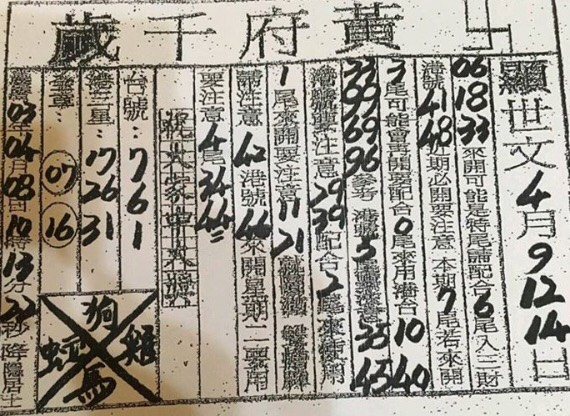 黃府千歲
羅世文4月9 12 14日
06 18 33來開可能是特尾請配合6尾入三財
港號41 48本期必開要注意 本期7尾若來開
3尾可能會再開要配合0尾來用港台10 40
33 99 69 96參考 港號5 注意35 45
港號要注意29 39配合2尾來
1尾來開要注意11 21
請注意42港號44來開星期二要用
要注意4尾34 44
祝大家中大獎
台號：7 6 1
港三星：17 26 31
07 16
03年04月08日10時13分22秒降
狗
蛇 雞
馬